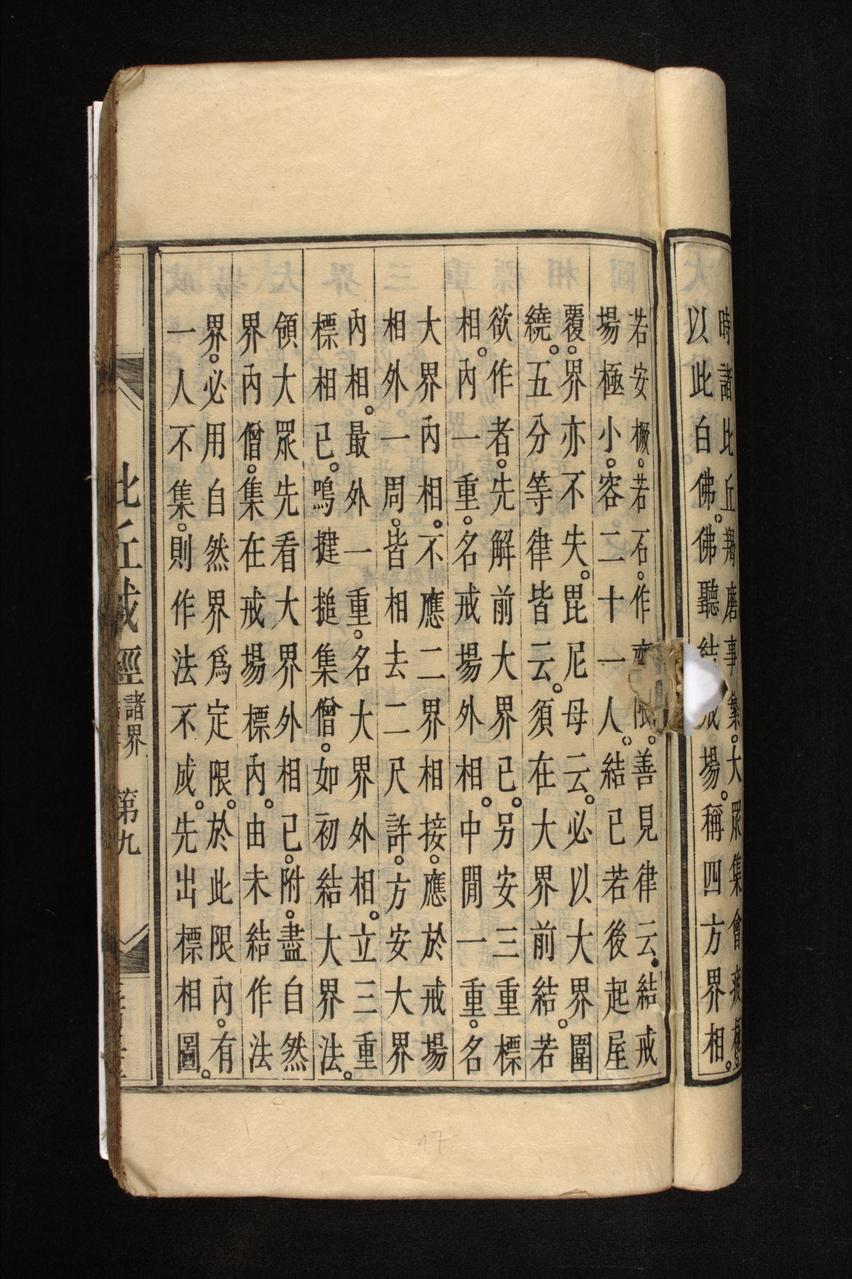 時諸比丘羯磨事集。大眾集會疲極
以此白佛。佛聽結戒場。稱四方界相。
若安橛。若石。作畺限。善見律云。結戒
場極小。容二十一人。結已若後起屋
覆。界亦不失。毘尼母云。必以大界圍
繞。五分等律皆云。須在大界前結。若
欲作者。先解前大界已。另安三重標
相。內一重。名戒場外相。中間一重。名
大界內相。不應二界相接。應於戒場
相外一周。皆相去二尺許。方安大界
內相。最外一重。名大界外相。立三重
標相已。鳴揵搥集僧。如初結大界法。
領大眾先看大界外相已。附。盡自然
界內僧。集在戒場標內。由未結作法
界。必用自然界為定限。於此限內。有
一人不集。則作法不成。先出標相圖。
比丘戒經
諸界
第九